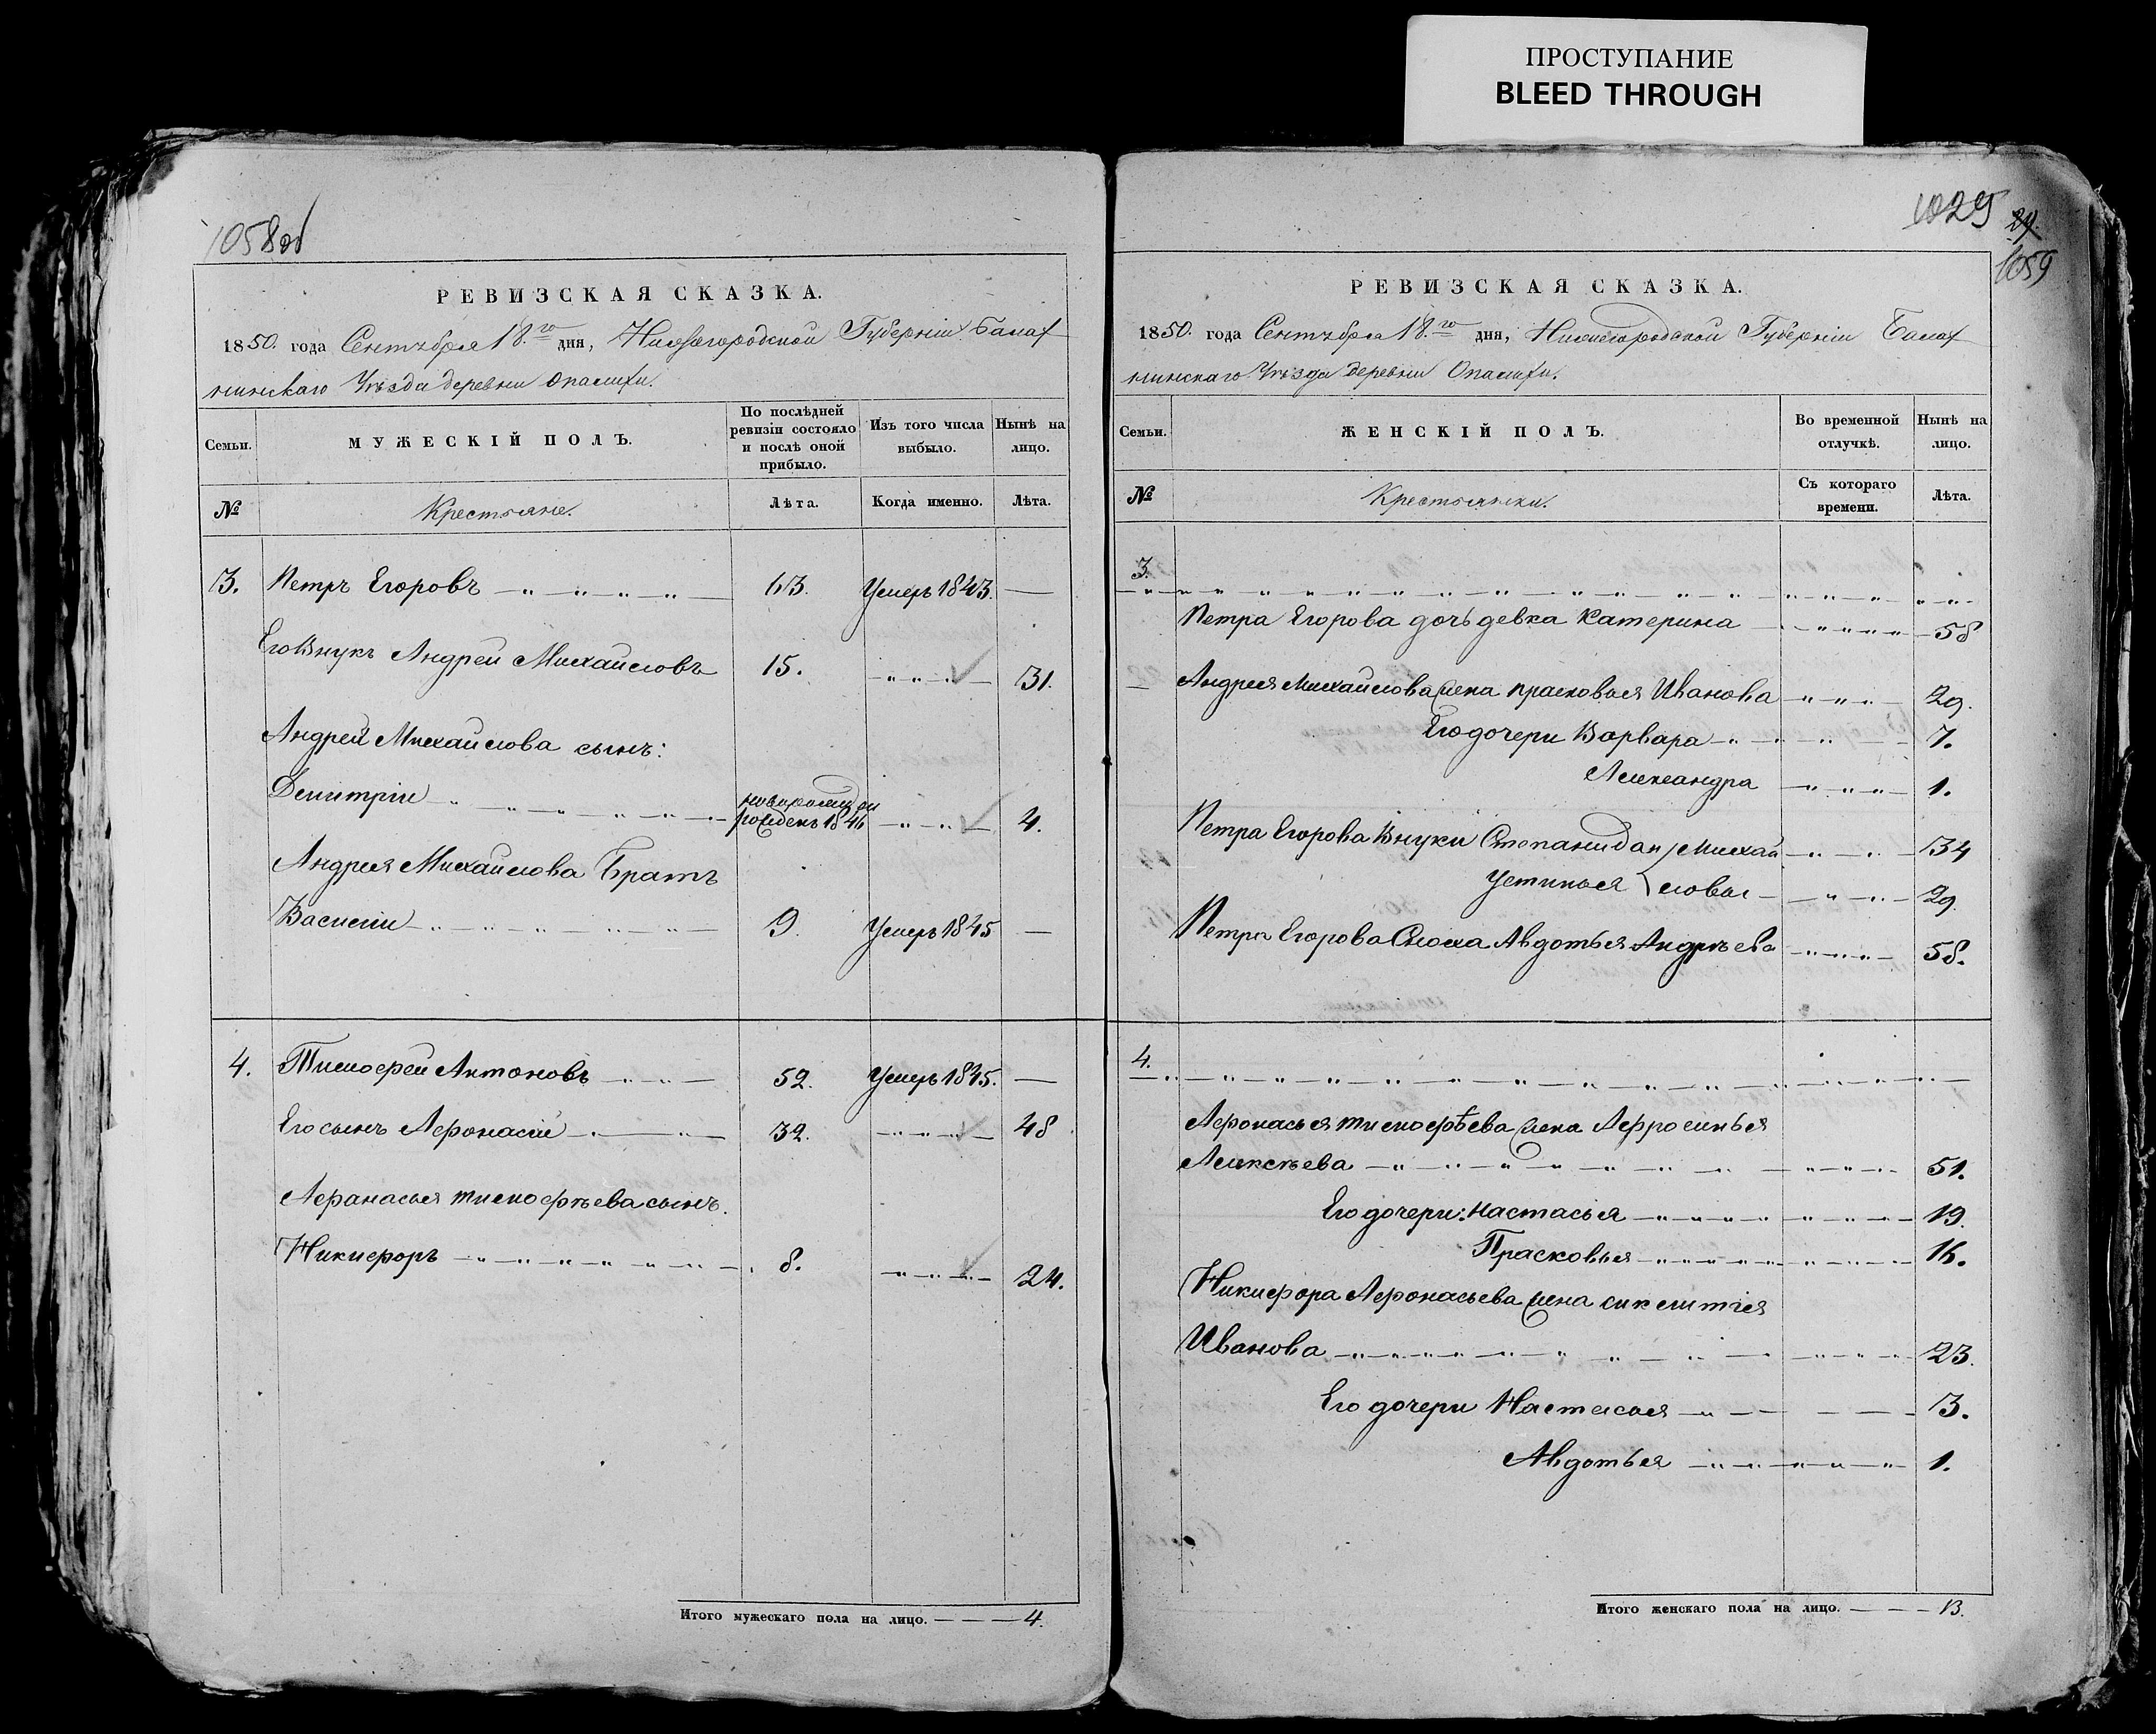 ПРОСТУПАНИЕ
BLEED THROUGH
1058об
РЕВИЗСКАЯ СКАЗКА.
1850. года Сентября 18.го дня, Нижегородской Губерніи Балах
нинскаго Уѣзда деревни Опалихи.
Семьи.
МУЖЕСКІЙ ПОЛЪ.
По послѣдней ревизіи состояло и послѣ оной прибыло.
Изъ того числа выбыло.
Нынѣ на лицо.
№
Крестьяне.
Лѣта.
Когда именно.
Лѣта.
3. Петръ Егоровъ 63. Умеръ 1843. —
Его Внукъ Андрей Михайловъ 15. 31.
Андрей Михайлова сынъ:
Демитріи рожденъ 1846 4.
Андрея Михайлова Братъ
Василіи 9. Умеръ 1845 —
4. Тимофей Антоновъ 52. Умеръ 1845. —
Его сынъ Афонасій 32. 48
Афанасья тимофѣева сынъ.
Никифоръ 8. 24.
Итого мужескаго пола на лицо. — — — 4.
1029
29.
1059
РЕВИЗСКАЯ СКАЗКА.
1850. года Сентября 18.го дня, Нижегородской Губерніи Балах
нинскаго Уѣзда деревни Опалихи.
Семьи.
ЖЕНСКІЙ ПОЛЪ.
Во временной отлучкѣ.
Нынѣ на лицо.
№
Крестьянки.
Съ котораго времени.
Лѣта.
3.
Петра Егорова дочь девка Катерина 58
Андрея Михайлова жена прасковья Иванова 29.
Его дочери Варвара 7.
Александра 1.
Петра Егорова Внуки Степанида Михай 34
Устинья ловы 29.
Петра Егорова Сноха Авдотья Андрѣева 58.
4.
Афонасья тимофѣева жена Афросинья
Алексѣева 51.
Его дочери: Настасья 19.
Прасковья 16.
Никифора Афонасьева жена
Иванова 23.
Его дочери Настасья 3.
Авдотья 1.
Итого женскаго пола на лицо. — — — 13.